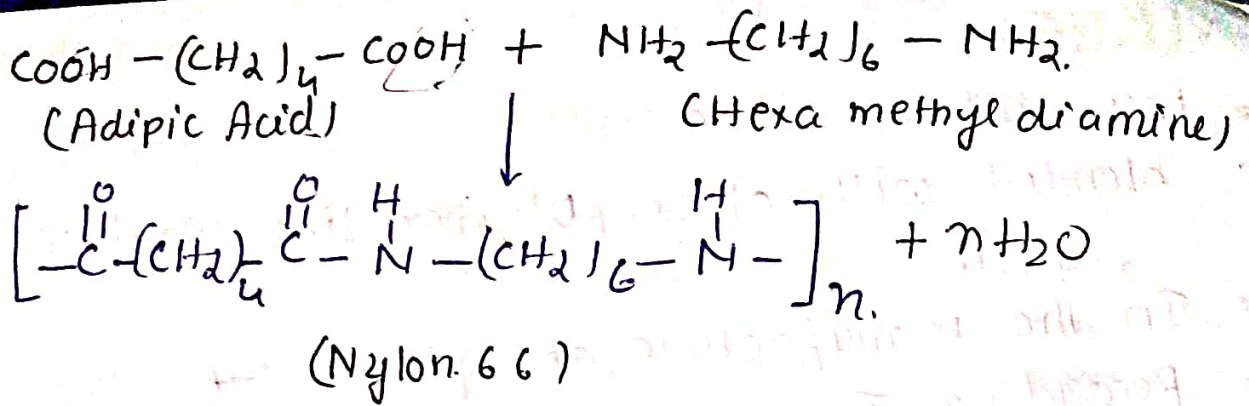 COOH - (CH2)4 - COOH + NH2 -(CH2)6 - NH2.
(Adipic Acid) (Hexa methyl diamine)
O O H H
[-C-(CH2)4-C-N-(CH2)6-N-]n. + nH2O
(Nylon. 66)